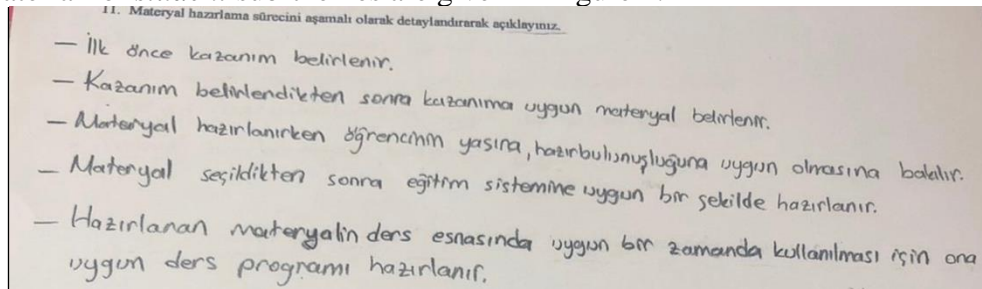 11. Materyal hazırlama sürecini aşamalı olarak detaylandırarak açıklayınız.
— İlk önce kazanım belirlenir.
— Kazanım belirlendikten sonra kazanıma uygun materyal belirlenir.
— Materyal hazırlanırken öğrencinin yaşına, hazırbulunuşluğuna uygun olmasına bakılır.
— Materyal seçildikten sonra eğitim sistemine uygun bir şekilde hazırlanır.
— Hazırlanan materyalin ders esnasında uygun bir zamanda kullanılması için ona
uygun ders programı hazırlanır.